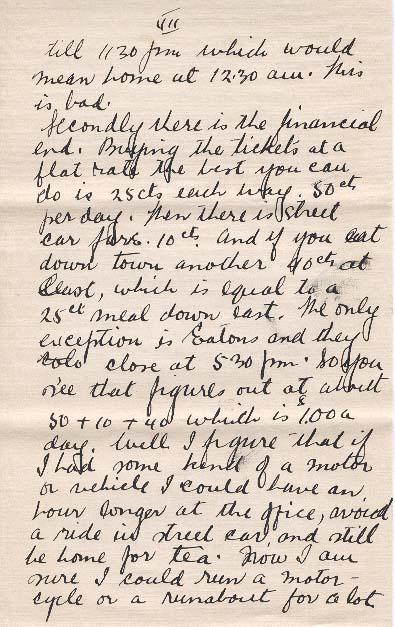 VII
till 1130 pm which would
mean home at 12.30 am. This
is bad.
Secondly there is the financial
end. Buying the tickets at a
flat rate the best you can
do is 25cts each way. 50cts
per day. Then there is street
car fare. 10ct. And if you eat
down town another 40cts at
least, which is equal to a
25ct meal down east. The only
exception is Eatons and they
close at 530 pm. So you
see that figures out at about
50 + 10 + 40 which is $1.00 a
day. Well I figure that if
I had some kind of a motor
or vehicle I could have an
hour longer at the office, avoid
a ride in street car, and still
be home for tea. Now I am
sure I could run a motor-
cycle or a runabout for a lot